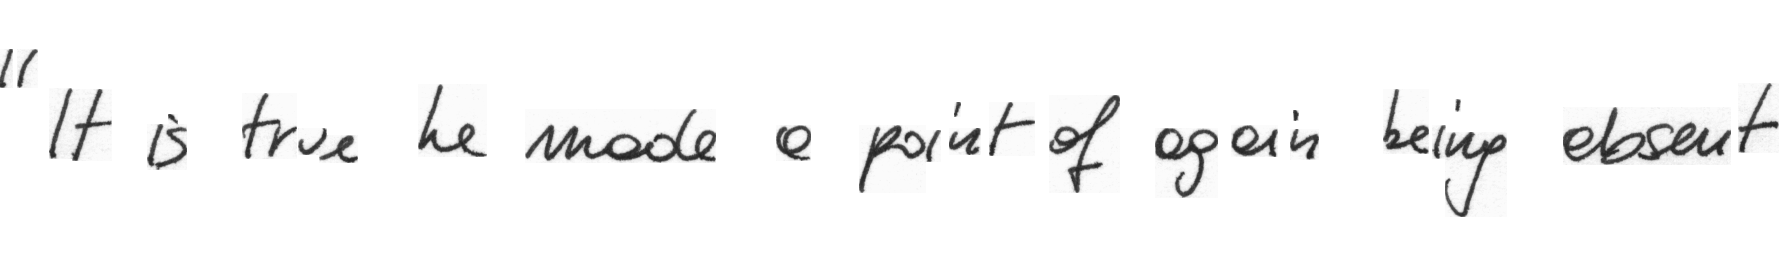 "It is true he made a point of again being absent